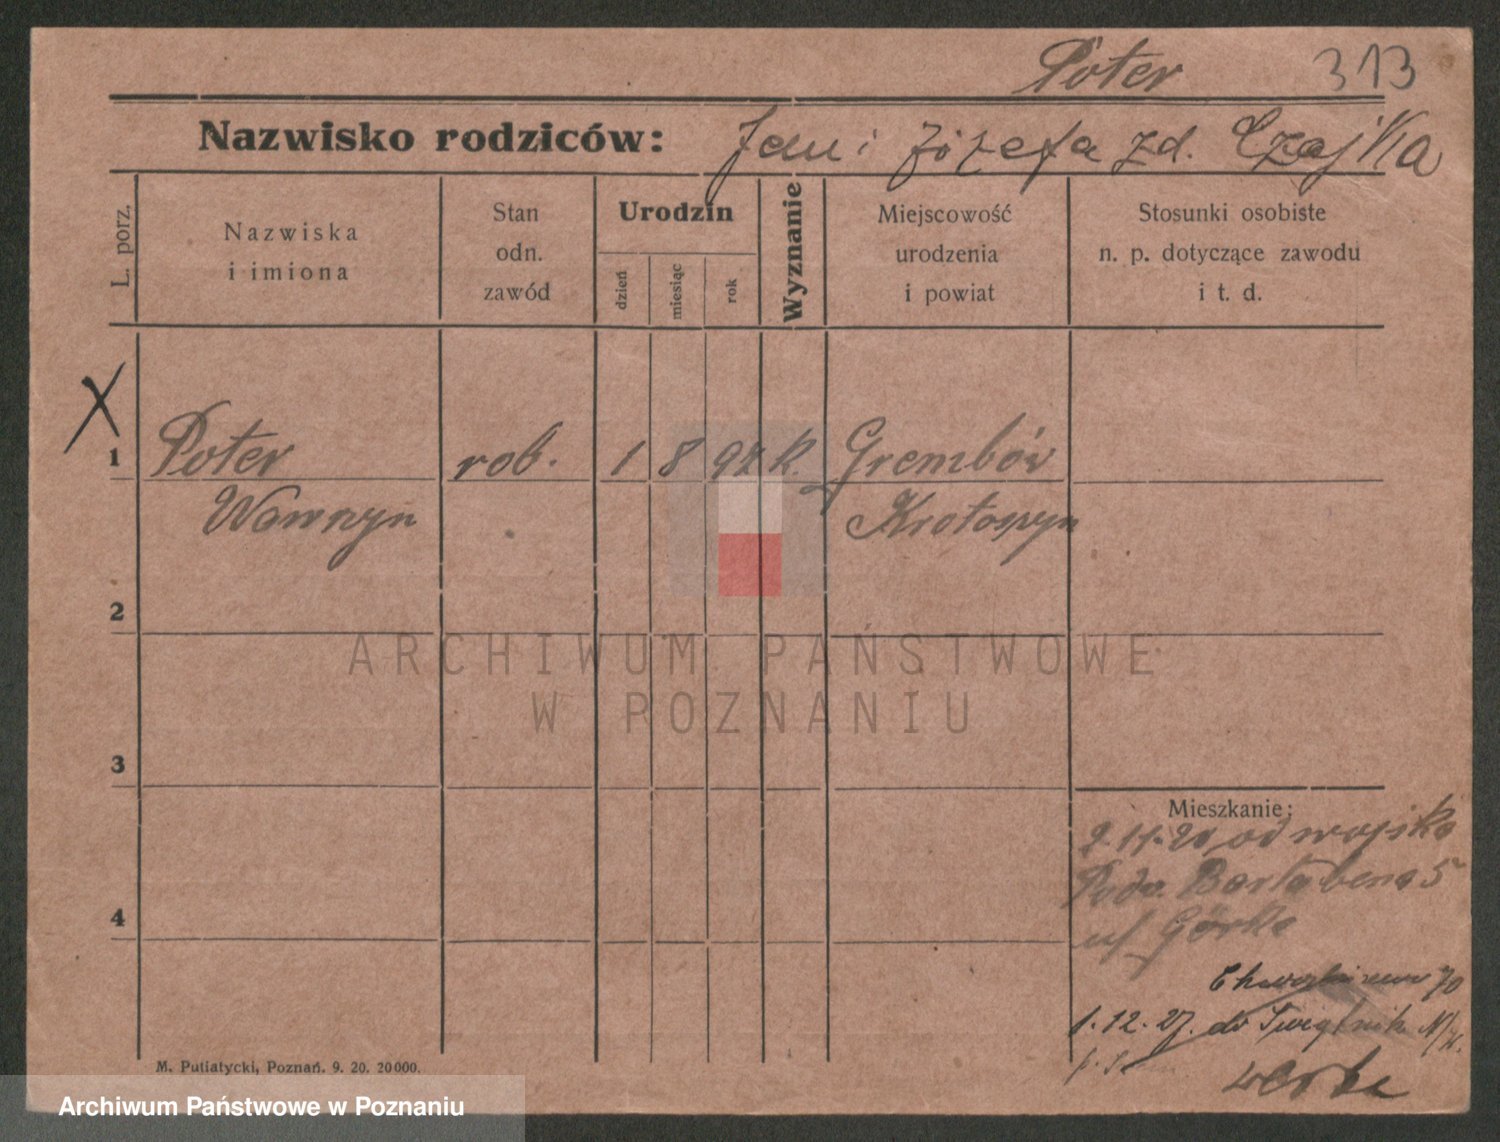 Poter 313
Nazwisko rodziców: Jan i Józefa zd. Czajka
L. porz.
Nazwiska
i imiona
Stan
odn.
zawód
Urodzin
dzień
miesiąc
rok
Wyznanie
Miejscowość
urodzenia
i powiat
Stosunki osobiste
n. p. dotyczące zawodu
i t. d.
X
1 Poter rob. 1 8 97 k. Grembów
Wawrzyn Krotoszyn
2
3
4
Mieszkanie:
od wojska
5
u/ Górka
70
1.12.27. do
M. Putiatycki, Poznań. 9. 20. 20000.
ARCHIWUM PAŃSTWOWE
W POZNANIU
Archiwum Państwowe w Poznaniu